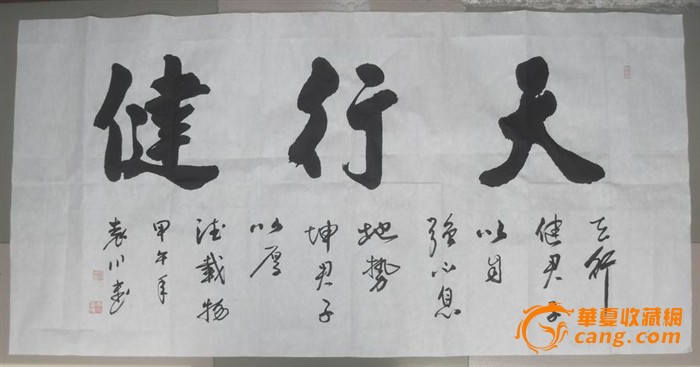 天行健
天行
健君子
以自
強不息
地勢
坤君子
以厚
德載物
甲午年
袁川书
華夏收藏網
cang.com